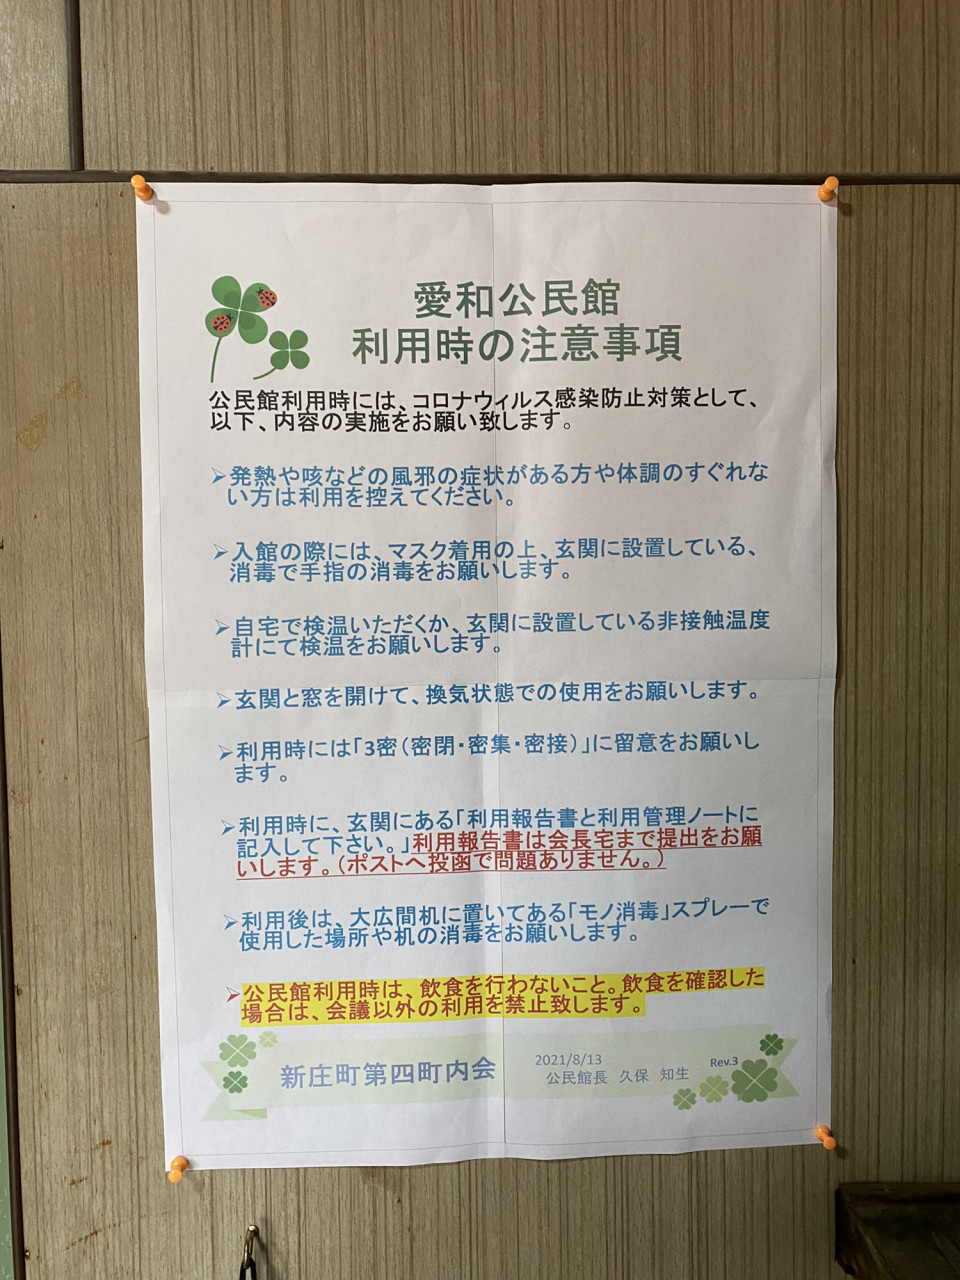 愛和公民館
利用時の注意事項
公民館利用時には、コロナウィルス感染防止対策として、
以下、内容の実施をお願い致します。
➢発熱や咳などの風邪の症状がある方や体調のすぐれな
い方は利用を控えてください。
➢入館の際には、マスク着用の上、玄関に設置している、
消毒で手指の消毒をお願いします。
➢自宅で検温いただくか、玄関に設置している非接触温度
計にて検温をお願いします。
➢玄関と窓を開けて、換気状態での使用をお願いします。
➢利用時には「3密（密閉・密集・密接）」に留意をお願いし
ます。
➢利用時に、玄関にある「利用報告書と利用管理ノートに
記入して下さい。」利用報告書は会長宅まで提出をお願
いします。（ポストへ投函で問題ありません。）
➢利用後は、大広間机に置いてある「モノ消毒」スプレーで
使用した場所や机の消毒をお願いします。
➢公民館利用時は、飲食を行わないこと。飲食を確認した
場合は、会議以外の利用を禁止致します。
新庄町第四町内会
2021/8/13
Rev.3
公民館長 久保 知生